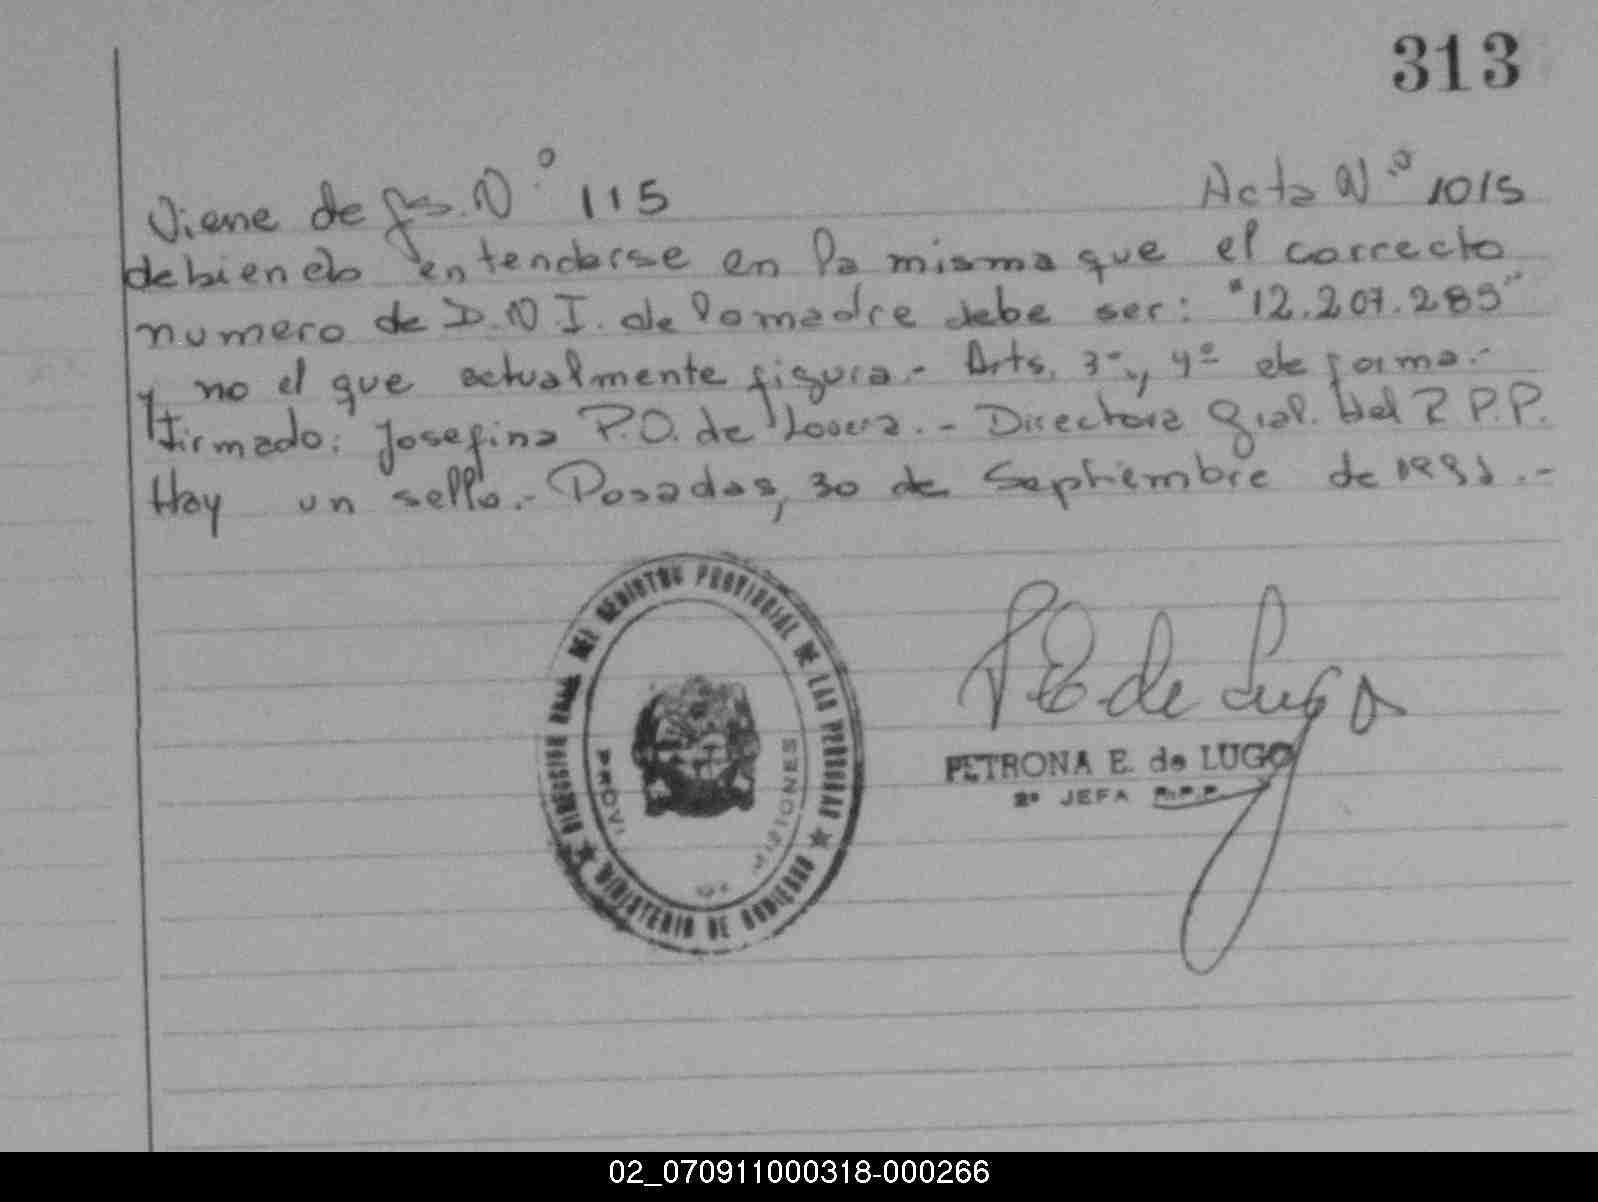 313
Viene de fs. Nº 115 Acta Nº 1015
debiendo entenderse en la misma que el correcto
numero de D.N.I. de la madre debe ser: "12.207.289"
y no el que actualmente figura.- Arts. 3º y 4º de forma.-
Firmado: Josefina P.O. de Lovera.- Directora Gral. del R.P.P.
Hay un sello.- Posadas, 30 de Septiembre de
DIRECCION GRAL. DEL REGISTRO PROVINCIAL DE LAS PERSONAS
MINISTERIO DE GOBIERNO
P E de Lugo
PETRONA E. de LUGO
2º JEFA R.P.P.
02_070911000318-000266